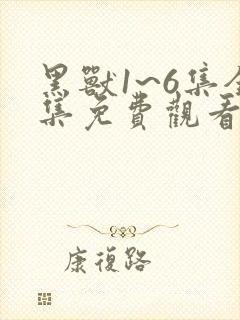 黑獸1~6集全
集免費觀看
康復路